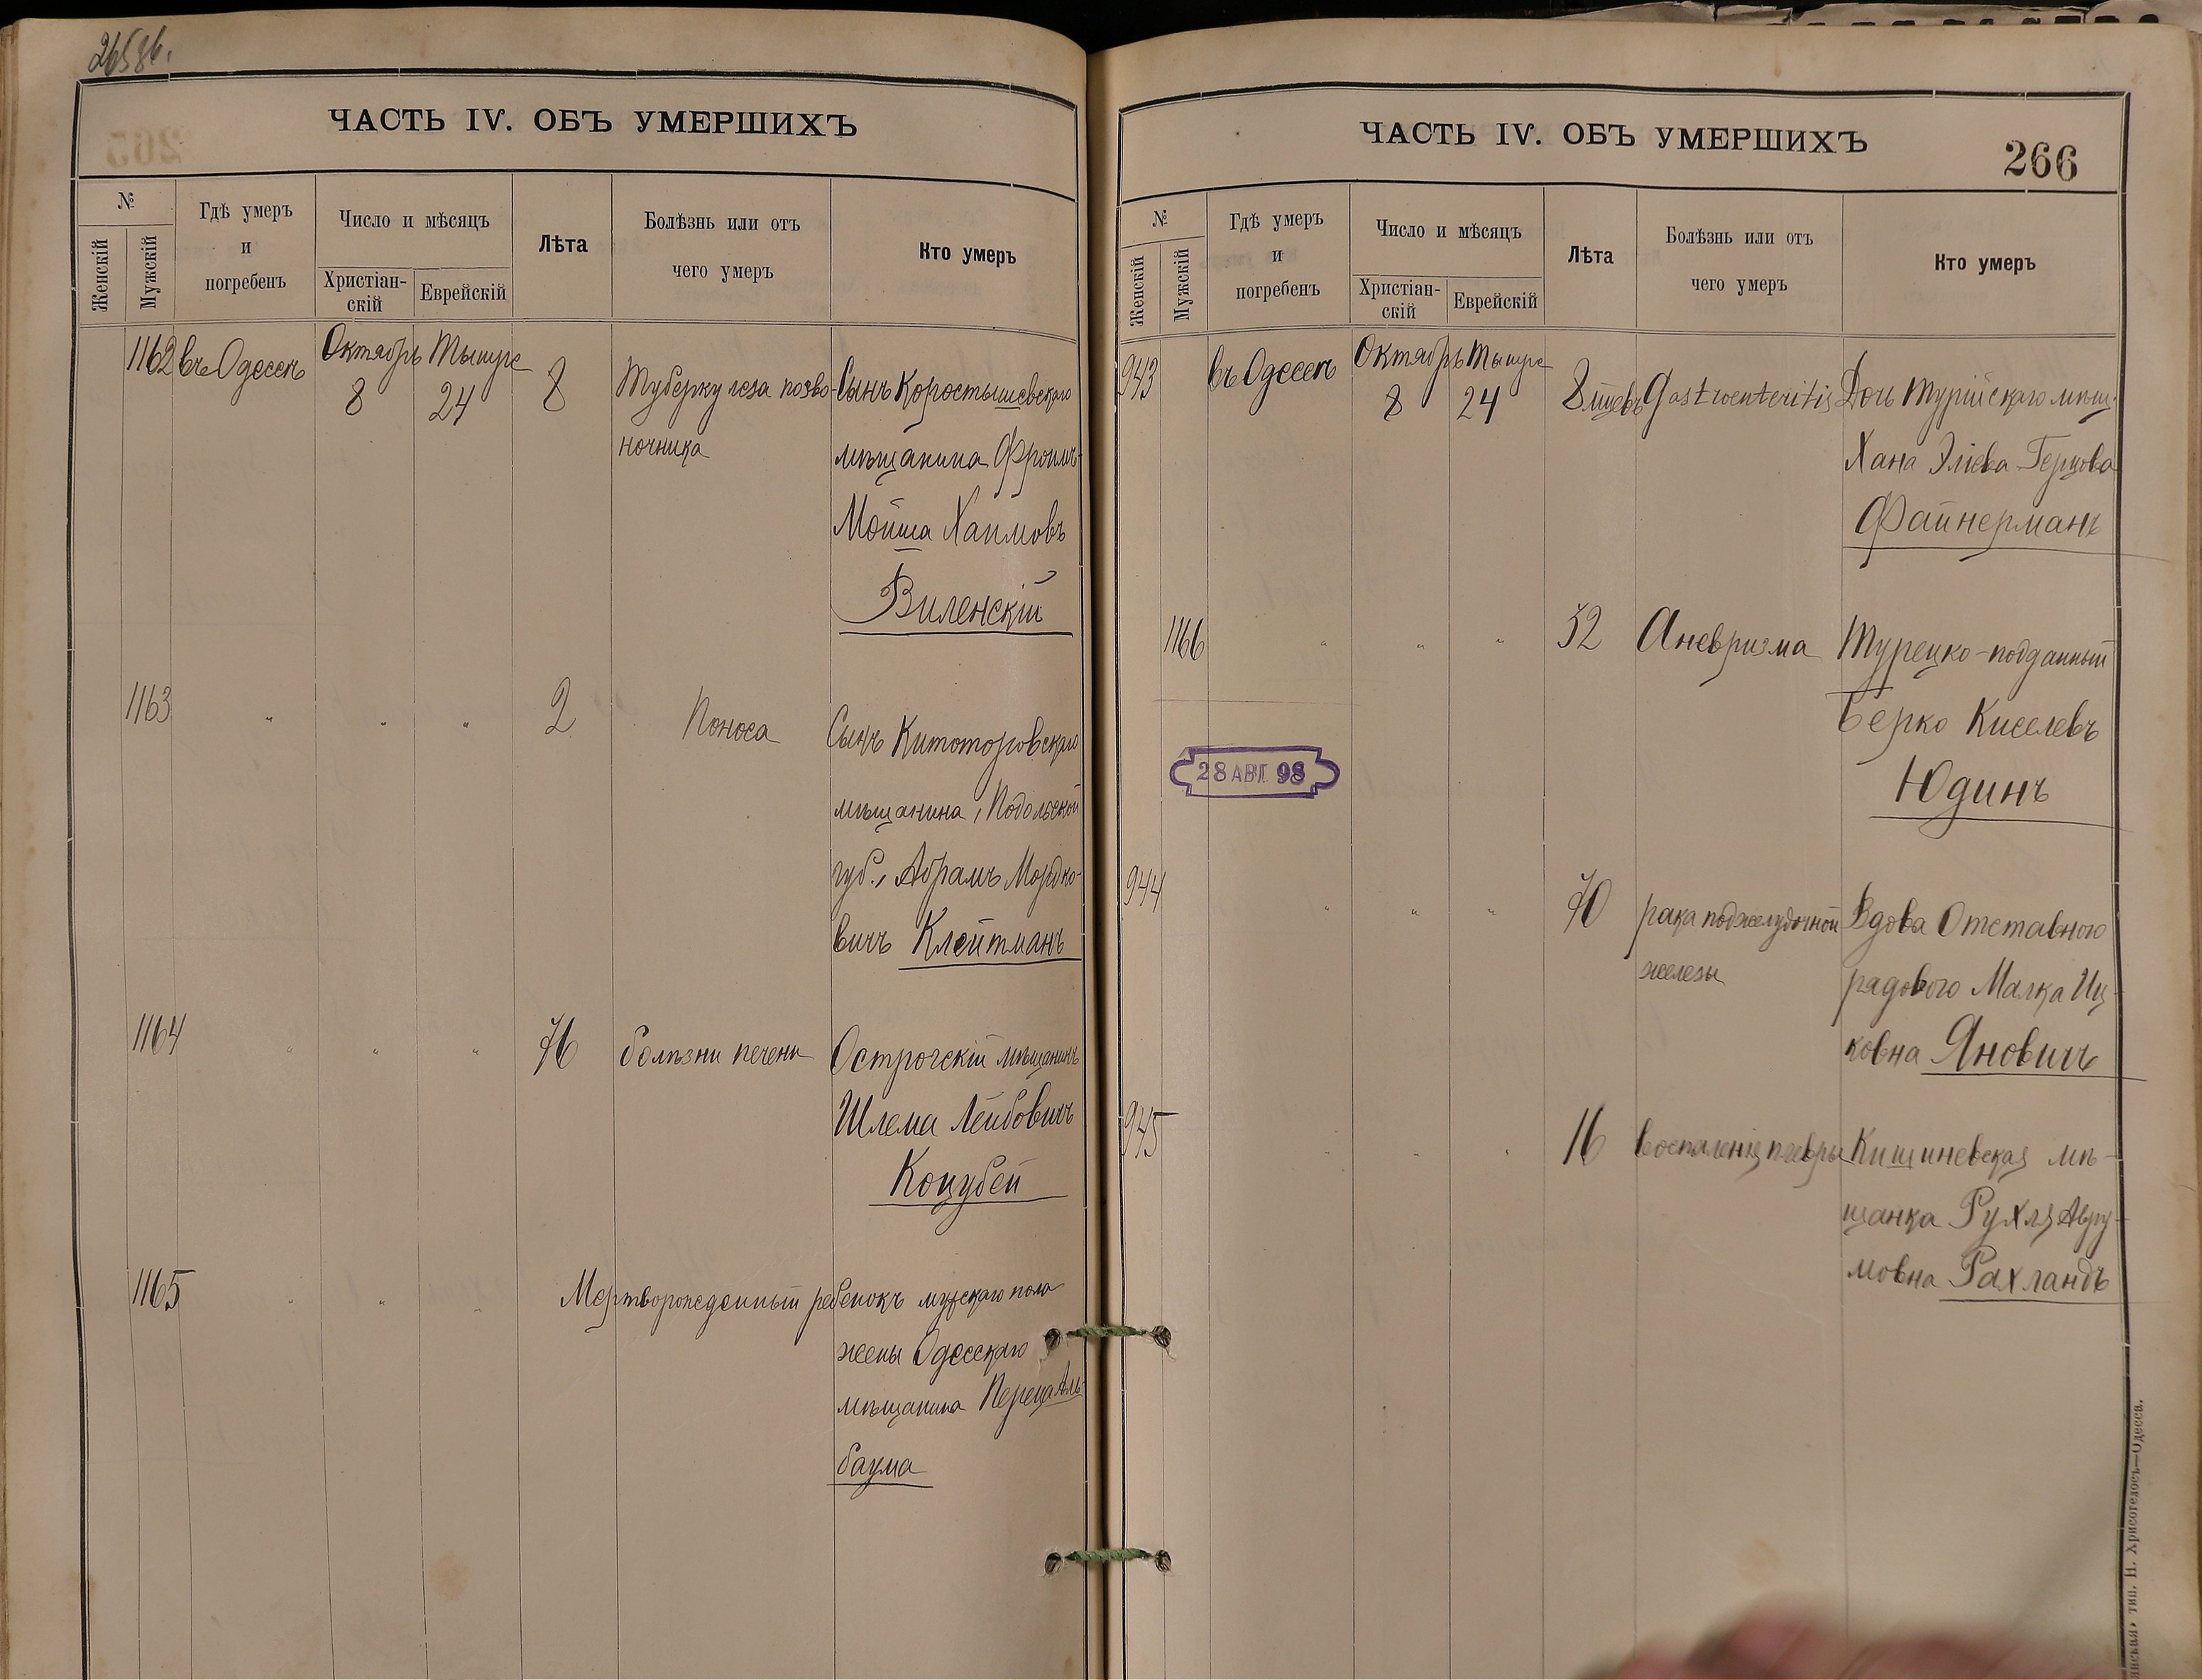 26586.
ЧАСТЬ IV. ОБЪ УМЕРШИХЪ
№
Женскій
Мужскій
Гдѣ умеръ
и
погребенъ
Число и мѣсяцъ
Христіан-
скій
Еврейскій
Лѣта
Болѣзнь или отъ
чего умеръ
Кто умеръ
1162 въ Одессѣ Октябрь Тышре
8 24 8 Туберкулеза позво- Сынъ Коростышевскаго
ночника мѣщанина Фроимъ-
Мойша Хаимовъ
Виленскій
1163 " " " 2 Поноса Сынъ Китоторовскаго
мѣщанина, Подольской
губ., Абрамъ Мордко-
вичъ Клейтманъ
1164 " " " 76 болѣзни печени Острогскій мѣщанинъ
Шлема Лейбовичъ
Коцубей
1165 " " " Мертворожденный ребенокъ мужскаго пола
жены Одесскаго
мѣщанина Переца Аль-
баума
ЧАСТЬ IV. ОБЪ УМЕРШИХЪ
266
№
Женскій
Мужскій
Гдѣ умеръ
и
погребенъ
Число и мѣсяцъ
Христіан-
скій
Еврейскій
Лѣта
Болѣзнь или отъ
чего умеръ
Кто умеръ
943 въ Одессѣ Октябрь Тышре
8 24 8 мцевъ Gastroenteritis Дочь Турійскаго мѣщ.
Хана Эліева-Герцова
Файнерманъ
1166 " " " 52 Аневризма Турецко-подданный
Берко Киселевъ
Юдинъ
28 АВГ. 98
944 " " " 70 рака поджелудочной Вдова Отставного
железы рядового Малка Иц-
ковна Яновичъ
945 " " " 16 воспаленія плевры Кишиневская мѣ-
щанка Рухля Авру-
мовна Рахландъ
тип. Н. Хрисогелосъ—Одесса.